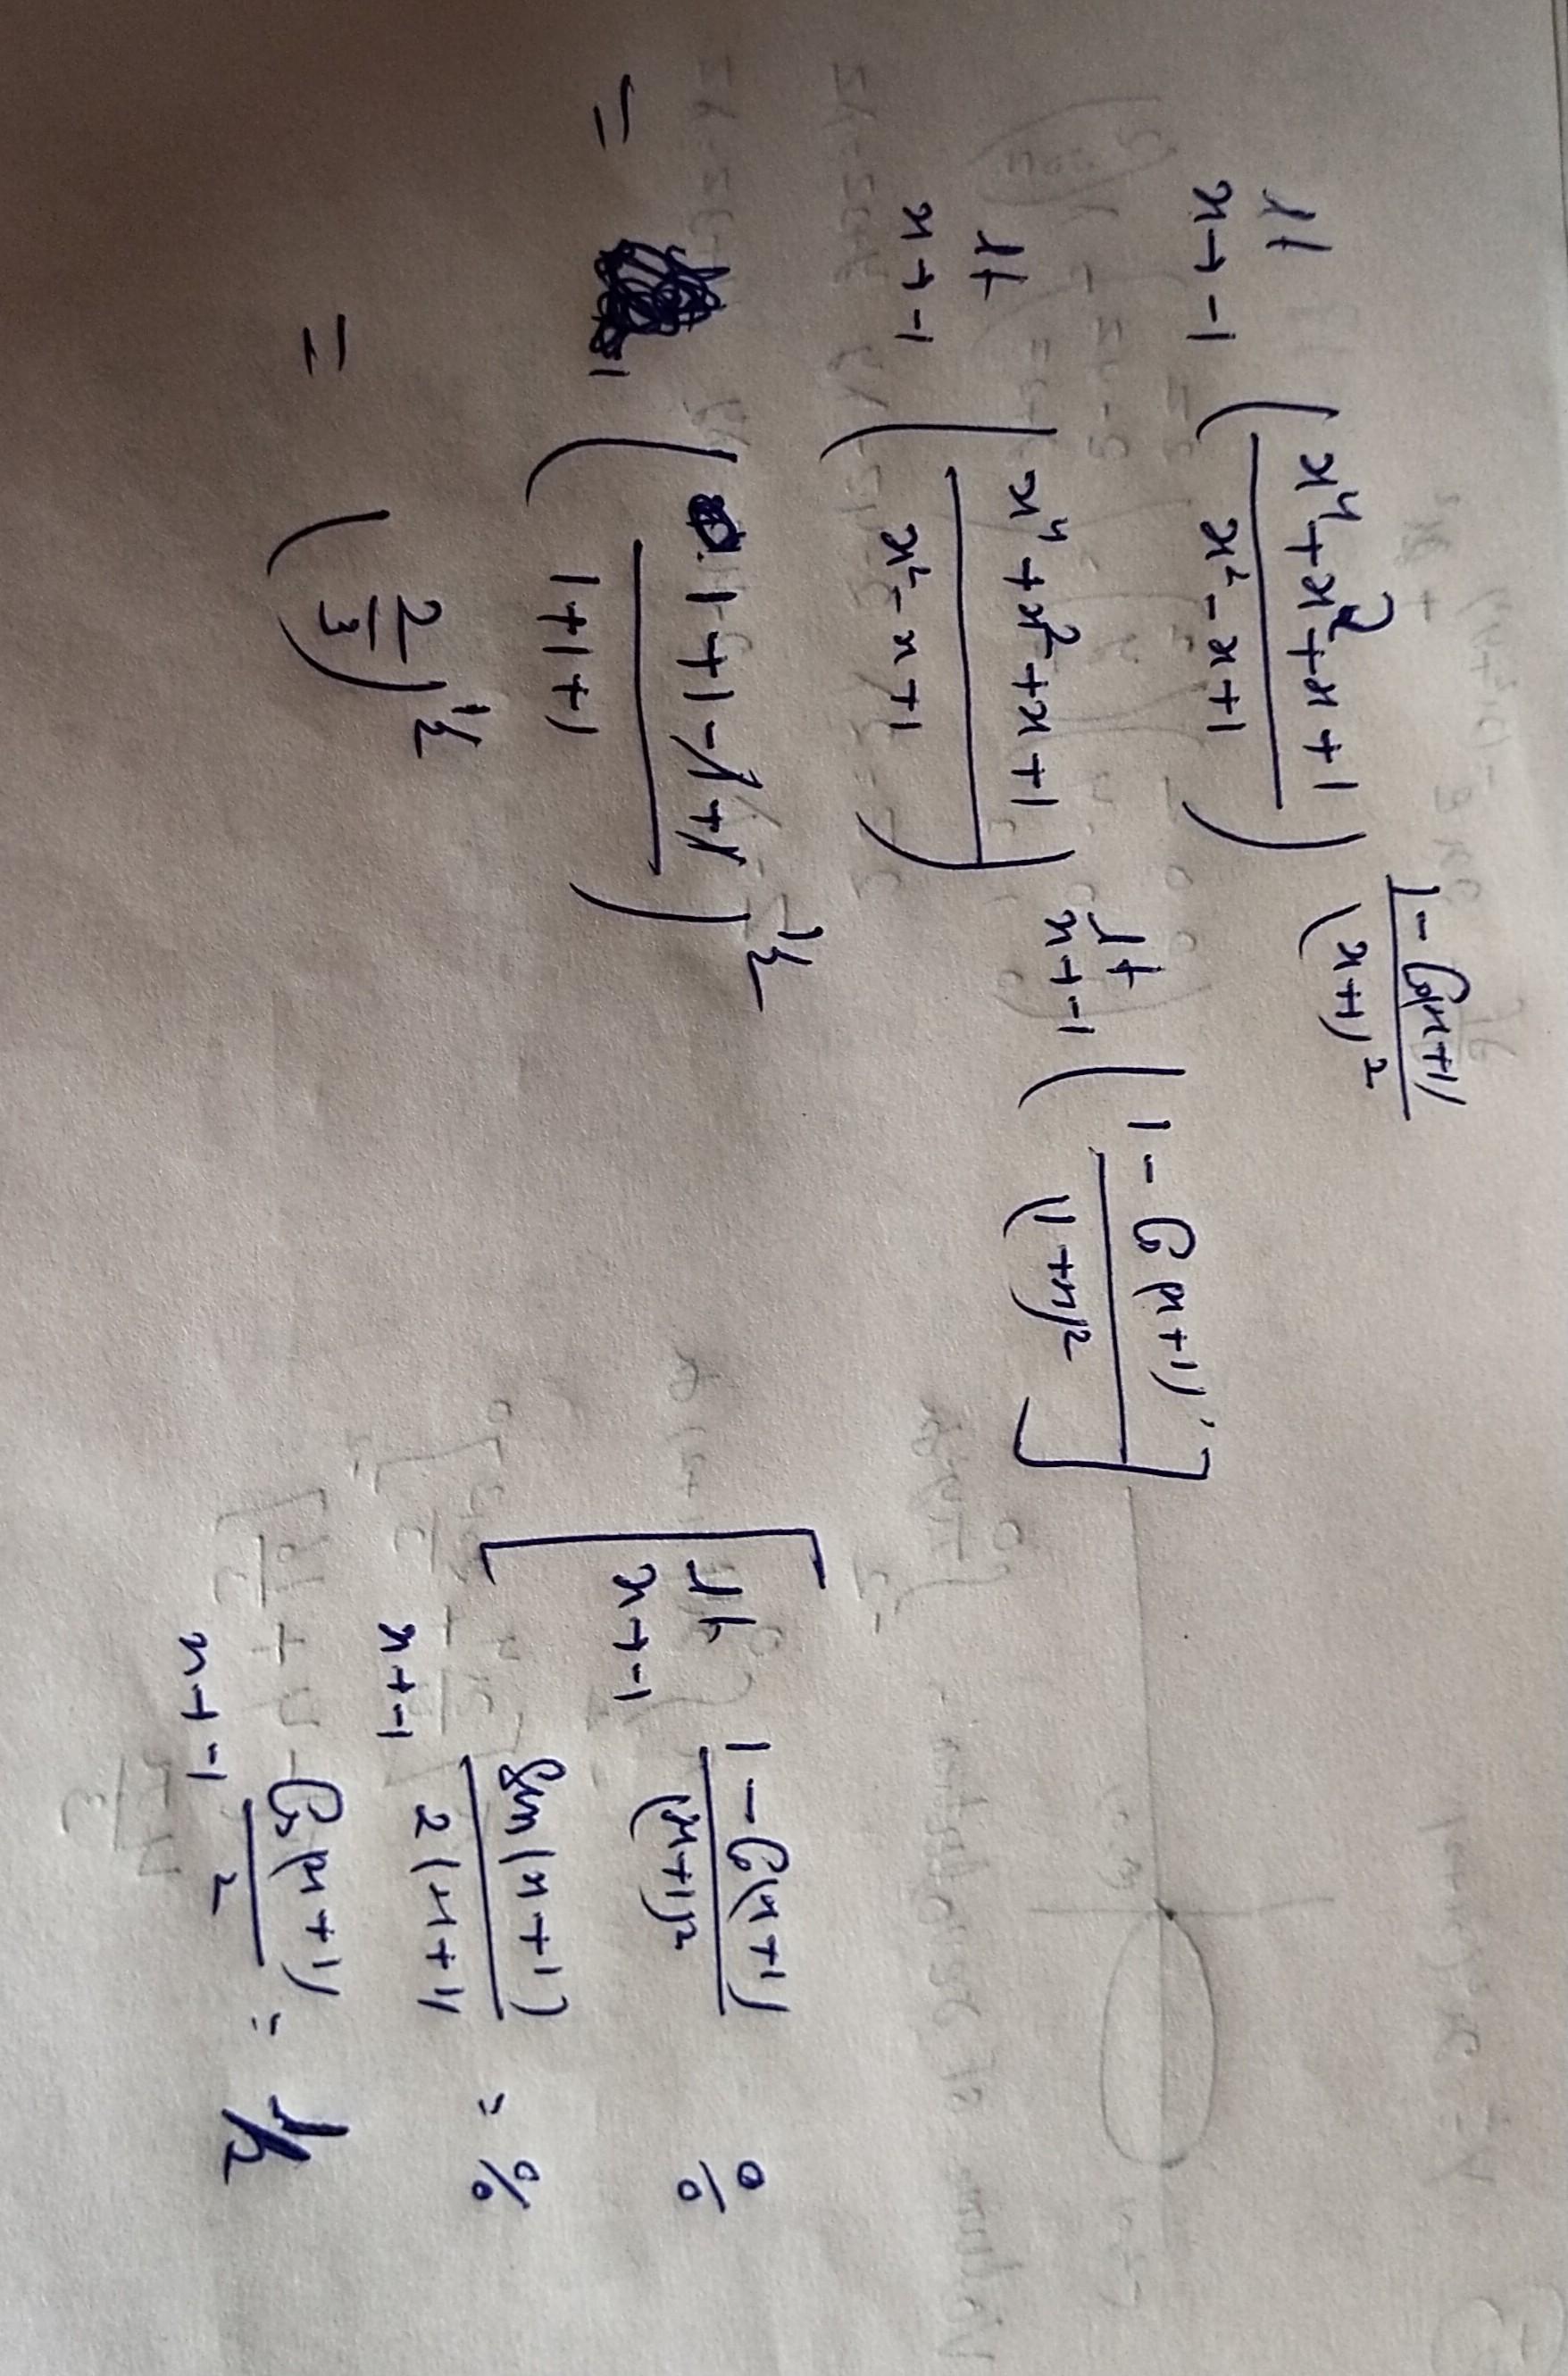 lt x→-1 ( (x⁴+x²+x+1) / (x²-x+1) ) ^ (1-Cos(x+1) / (x+1)²)
lt x→-1 ( (x⁴+x²+x+1) / (x²-x+1) ) ^ lt x→-1 ( 1-Cos(x+1) / (1+x)² ]
= ( (1+1-1+1) / (1+1+1) ) ^ 1/2
= ( 2/3 ) ^ 1/2
[ lt x→-1 1-Cos(x+1) / (x+1)² 0/0
x→-1 Sin(x+1) / 2(x+1) = 0/0
x→-1 Cos(x+1) / 2 = 1/2